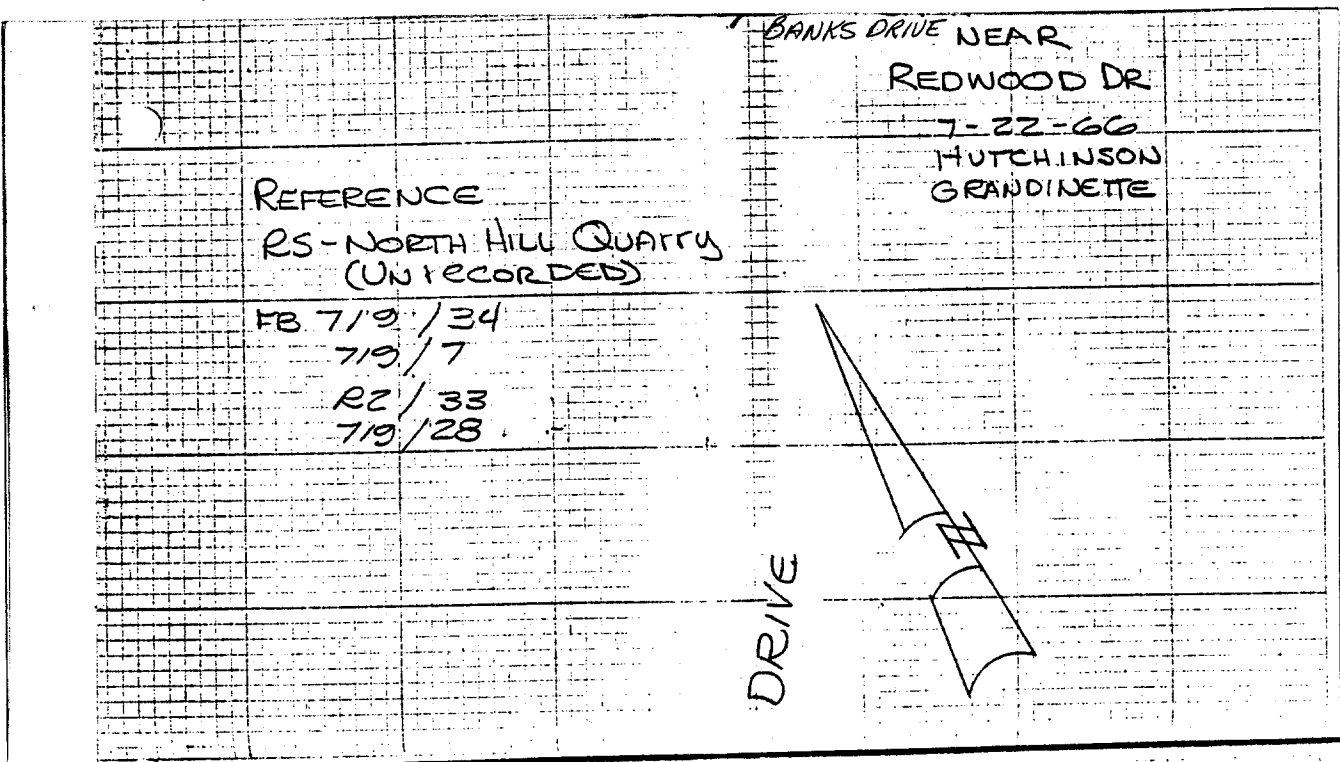 BANKS DRIVE NEAR
REDWOOD DR
7-22-66
HUTCHINSON
GRANDINETTE
REFERENCE
RS-NORTH HILL QUARRY
(UNRECORDED)
FB 719/34
719/7
R2/33
719/28
N
DRIVE